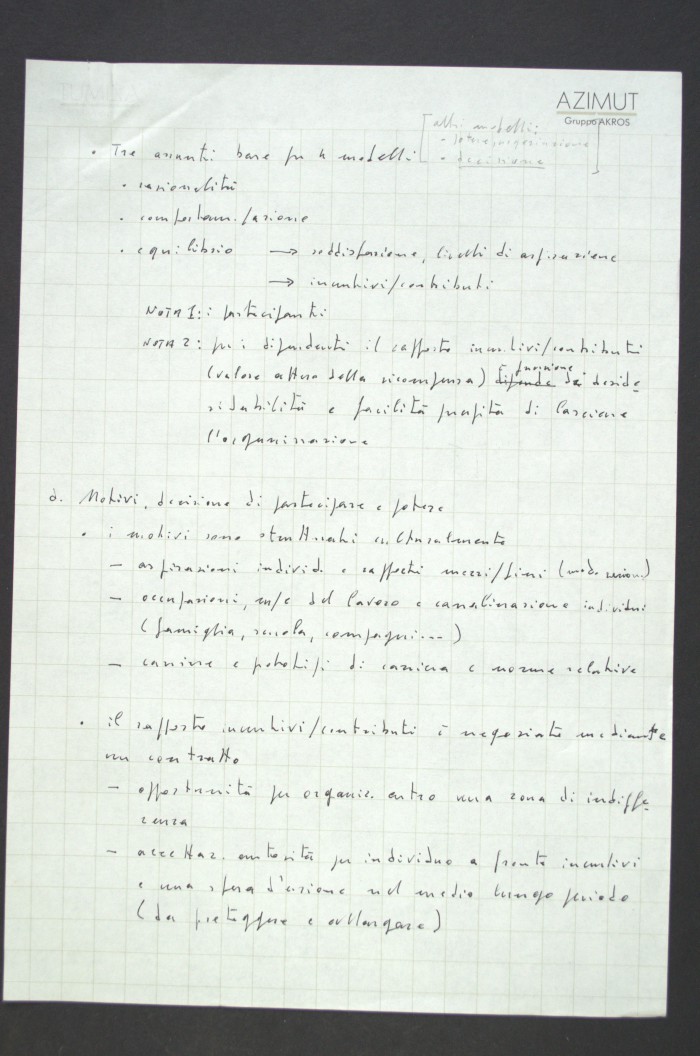 AZIMUT
Gruppo AKROS
[altri modelli:
• potere, organizzazione
• decisione]
• Tre assunti base per 4 modelli
• razionalità
• comportam./azione
• equilibrio → soddisfazione, livelli di aspirazione
→ incentivi/contributi
NOTA 1: i partecipanti
NOTA 2: per i dipendenti il rapporto incentivi/contributi
(valore atteso della ricompensa) è funzione
dipende da deside
rabilità e facilità di lasciare
l'organizzazione
d. Motivi, decisione di partecipare e potere
• i motivi sono strutturati culturalmente
– aspirazioni individ. e rapporti mezzi/fini
– occupazioni, m/c del lavoro e canalizzazione individui
(famiglia, scuola, compagni...)
– carriere e prototipi di carriera e norme relative
• il rapporto incentivi/contributi è negoziato mediante
un contratto
– opportunità per organiz. entro una zona di indiffe
renza
– accettaz. autorità per individuo a fronte incentivi
e una sfera d'azione nel medio lungo periodo
(da proteggere e allargare)